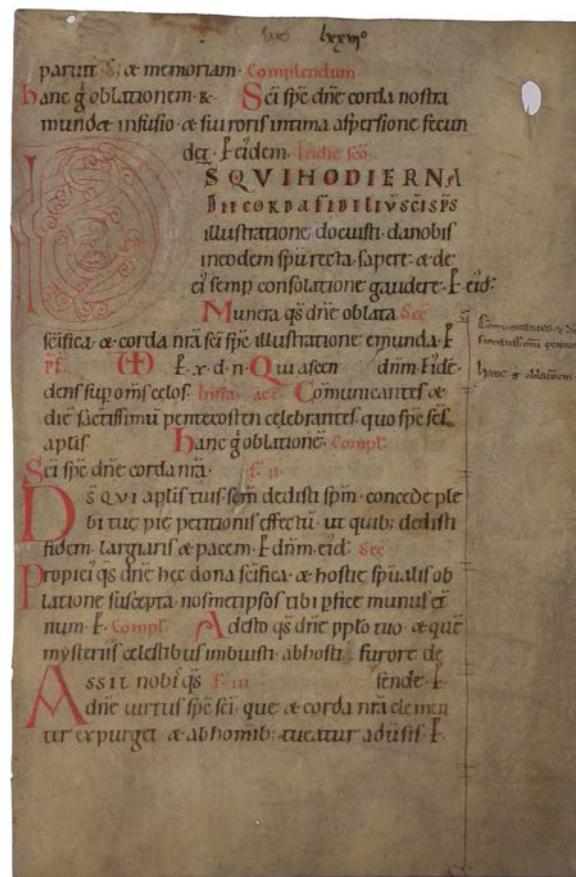 lxxvi⁰
parunt & memoriam. Complendum.
Hanc g̊ oblationem. &. Sc̄i sp̄c dn̄e corda nostra
mundet infusio. & sui roris intima aspersione fecun
det. P eidem. In die sc̄o
DS QVI HODIERNA
DIE CORDA FIDELIV̄ SC̄I SP̄S
illustratione docuisti. da nobis
in eodem sp̄u recta sapere. & de
ei' semp consolatione gaudere. P eid.
Munera qs dn̄e oblata Sec̄
sc̄ifica. & corda nr̄a sc̄i sp̄c illustratione emunda. P
P x. d. n. Qui ascen dn̄m. P idē.
dens sup om̄s celos. Infra act̄. Co͞municantes &
die sacr̄issimū pentecosten celebrantes. quo sp̄c sc̄s
aplis. Hanc g̊ oblatione. Compl.
Sc̄i sp̄c dn̄e corda nr̄a. f. ii
DS QVI aplis tuis sc̄m dedisti sp̄m. concede ple
bi tuę pie petitionis effectū. ut quib; dedisti
fidem. largiaris & pacem. P dn̄m. eid. Sec̄
Propici' qs dn̄e hec dona sc̄ifica. & hostie sp̄ualis ob
latione suscepta. nosmetipsos tibi pfice munus et̄
num. P. Compl. Adesto qs dn̄e pplo tuo. & que
mysteriis celestibus imbuisti. ab hosti furore de
ASSIT nobis qs f. iii fende. P
dn̄e virtus sp̄c sc̄i. que & corda nr̄a clemen
ter expurget. & ab homib; tueatur adūsis. P.
Co͞municantes &
sacratissimū pentec
hanc g̊ oblationem